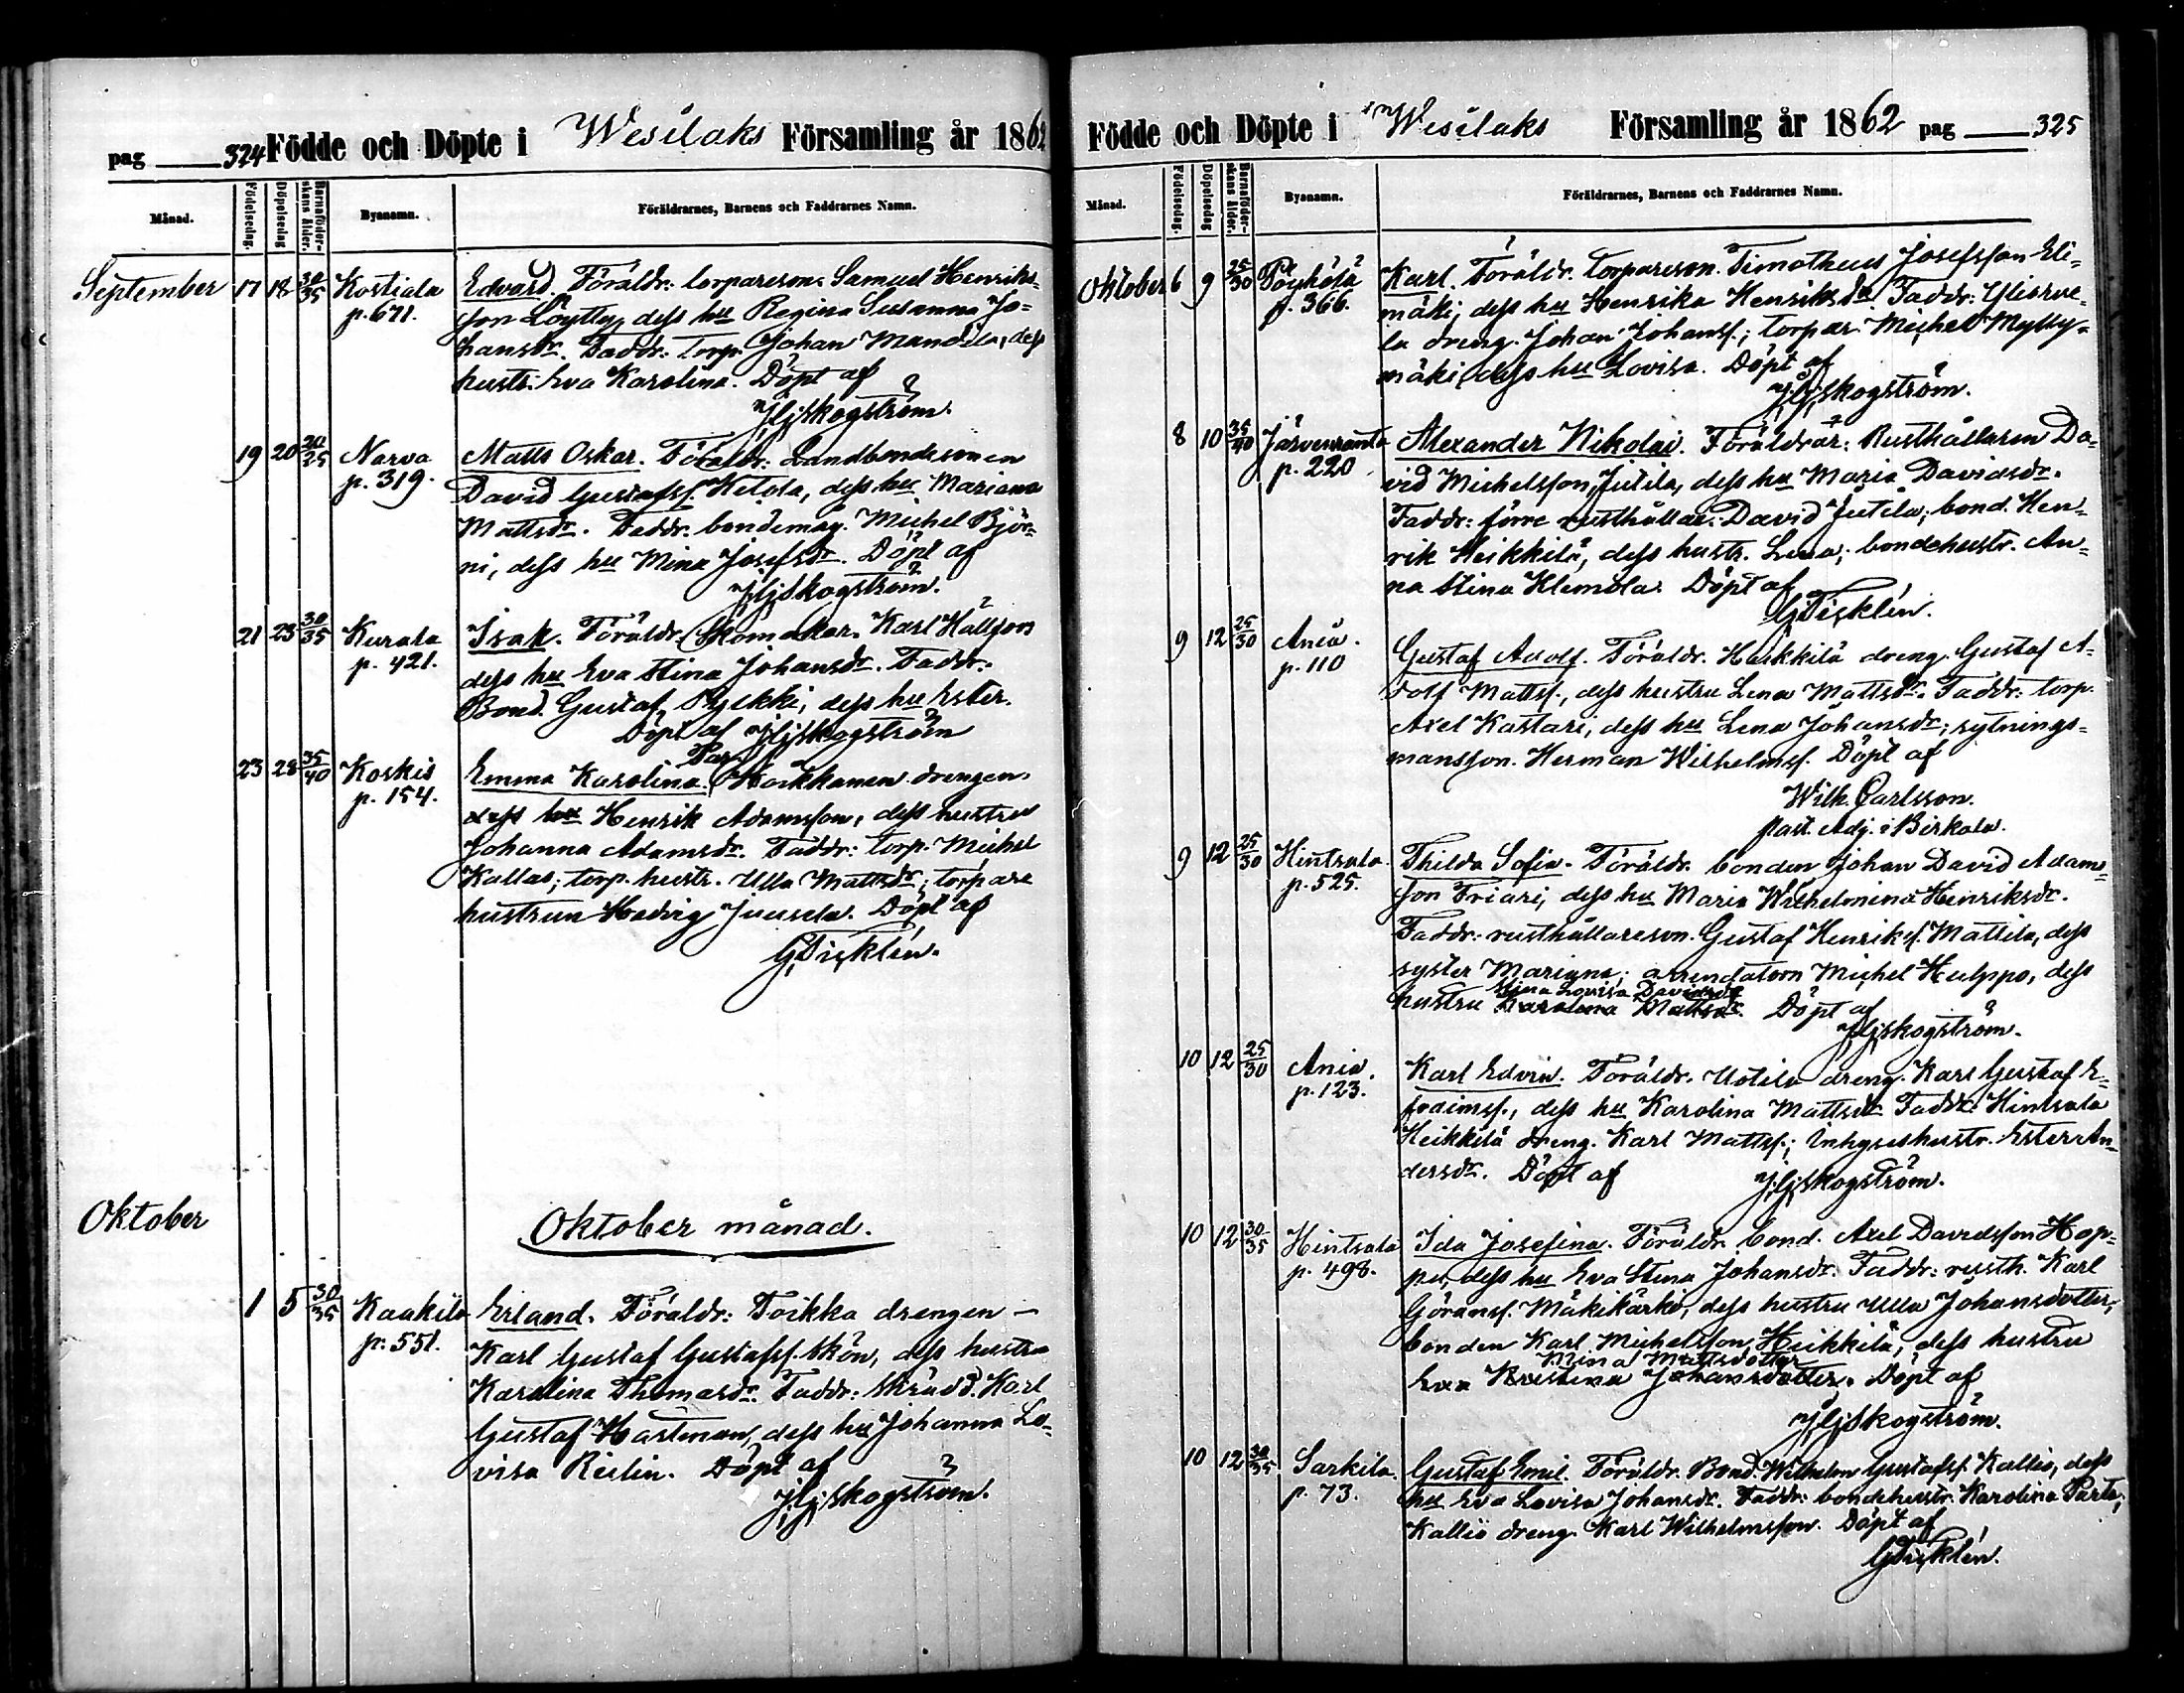 pag 324 Födde och Döpte i Wesilaks Församling år 1862
Månad. Födelsedag. Döpelsedag Barnaföderskans ålder. Byanamn. Föräldrarnes, Barnens och Faddrarnes Namn.
September 17 18 30/35 Kostiala Edvard. Föräldr: torpareson. Samuel Henriks-
p. 671. son Löytty, dess hu Regina Susanna Jo-
hansdr. Faddr: torp. Johan Mandila, dess
hustr: Eva Karolina. Döpt af
Skogström.
19 20 20/25 Narva Matts Oskar. Föräldr: Landbondesonen
p. 319. David Gustafss. Ketola, dess hu Mariana
Mattsdr. Faddr. bondemåg. Michel Björ-
ni, dess hu Mina Josefsdr. Döpt af
Skogström.
21 23 30/35 Kurala Isak. Föräldr. Skomakar. Karl Hällfors
p. 421. dess hu Eva Stina Johansdr. Faddr.
Bond. Gustaf Pyekki, dess hu Ester.
Döpt af Skogström
23 28 35/40 Koskis Emma Karolina. Par. Koikkanen drengen
p. 154. dess hu Henrik Adamsson, dess hustru
Johanna Adamsdr. Faddr: torp. Michel
Kallas; torp. hustr. Ulla Mattsdr; torpare
hustrun Hedvig Juusela. Döpt af
G Ticklén.
Oktober Oktober månad.
1 5 30/35 Kaakila Erland. Föräldr: Toikka drengen —
p. 551. Karl Gustaf Gustafss. Skön, dess hustru
Karolina Thomasdr. Faddr: Skräd. Karl
Gustaf Hastman, dess hu Johanna Lo-
visa Relin. Döpt af
Skogström.
Födde och Döpte i Wesilaks Församling år 1862 pag 325
Månad. Födelsedag. Döpelsedag Barnaföderskans ålder. Byanamn. Föräldrarnes, Barnens och Faddrarnes Namn.
Oktober 6 9 25/30 Pöyhölä Karl. Föräldr. torpareson. Timotheus Josefsson Eli-
p. 366. mäki, dess hu Henrika Henriksdr Faddr:
la dreng. Johan Johanss.; torpar. Michel Mylly-
mäki, dess hu Lovisa. Döpt af
Skogström.
8 10 35/40 Järvenranta Alexander Nikolai. Föräldrar: Rusthållaren Da-
p. 220 vid Michelsson Jutila, dess hu Maria Davidsdr.
Faddr: förre rusthållar: David Jutila; bond. Hen-
rik Heikkilä, dess hustr. Lena; bondehustr. An-
na Stina Klemola. Döpt af
G Ticklén.
9 12 25/30 Ania. Gustaf Adolf. Föräldr. Heikkilä dreng. Gustaf A-
p. 110 dolf Mattss., dess hustru Lena Mattsdr. Faddr: torp.
Axel Kastari, dess hu Lena Johansdr; sytnings-
mansson. Herman Wilhelmss. Döpt af
Wilh. Carlsson.
Past. Adj. i Birkala.
9 12 25/30 Hintsala. Thilda Sofia. Föräldr. bonden Johan David Adams-
p. 525. son Friari, dess hu Maria Wilhelmina Henriksdr.
Faddr: rusthållareson. Gustaf Henrikss. Mattila, dess
syster Mariana; arrendatorn Michel Hulppo, dess
Stina Lovisa Davidsdr
hustru Karolina Mattsdr. Döpt af
Skogström.
10 12 25/30 Ania. Karl Edvin. Föräldr. Uotila dreng. Karl Gustaf E-
p. 123. fraimss., dess hu Karolina Mattsdr. Faddr: Hintsala
Heikkilä dreng. Karl Mattss.; Inhyseshustr. Ester An-
dersdr. Döpt af Skogström.
10 12 30/35 Hintsala Ida Josefina. Föräldr. bond. Axel Davidsson Hop-
p. 498. pu, dess hu Eva Stina Johansdr. Faddr: rusth. Karl
Göranss. Mäkikärki, dess hustru Ulla Johansdotter;
bonden Karl Michelsson Heikkilä, dess hustru
Mina Mattsdotter
Eva Kristina Johansdotter. Döpt af
Skogström.
10 12 30/35 Sarkila. Gustaf Emil. Föräldr. Bond. Wilhelm Gustafss. Kallio, dess
p. 73. hu Eva Lovisa Johansdr. Faddr: bondehustr. Karolina Parta;
Kallio dreng. Karl Wilhelmsson. Döpt af
G Ticklén.